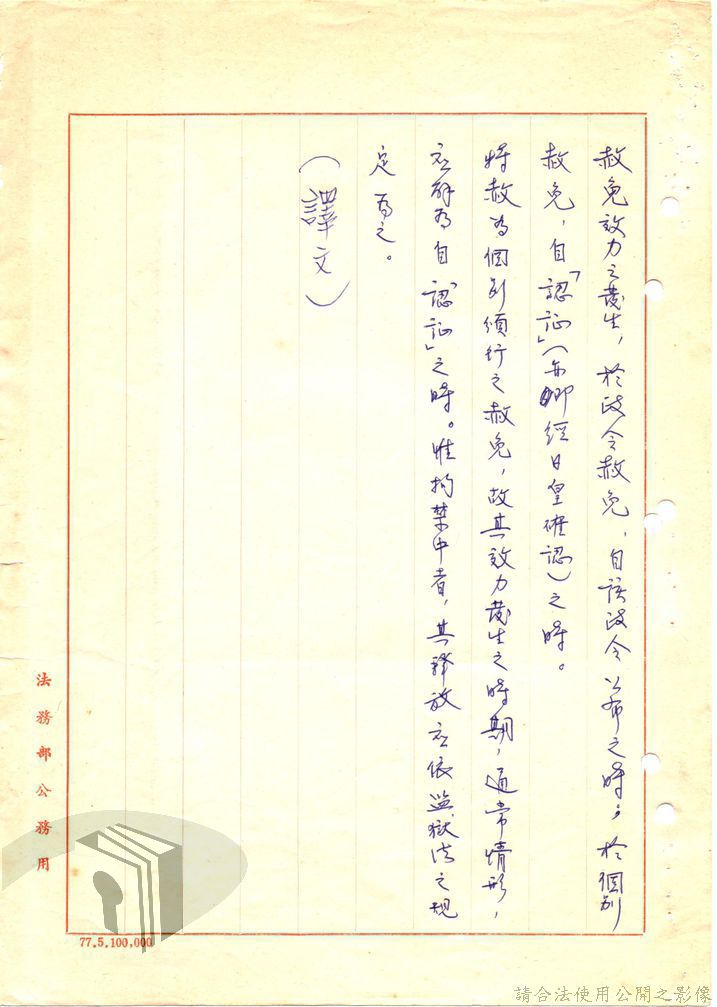 赦免效力之發生，於政令赦免，自該政令公布之時；於個別
赦免，自「認証」（亦即經日皇確認）之時。
特赦為個別頒行之赦免，故其效力發生之時期，通常情形，
應解為自「認証」之時。惟拘禁中者，其釋放應依監獄法之規
定為之。
（譯文）
法務部公務用
77.5.100,000
請合法使用公開之影像